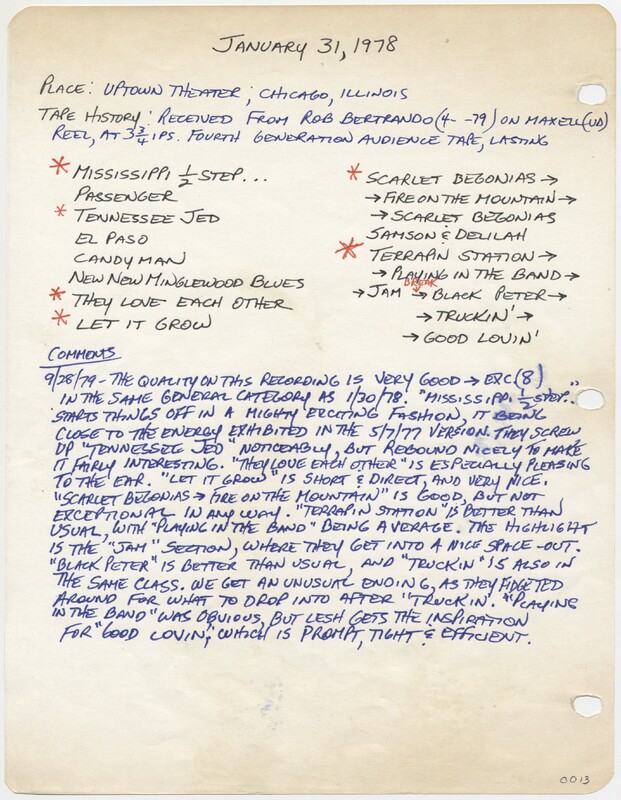 JANUARY 31, 1978
PLACE: UPTOWN THEATER; CHICAGO, ILLINOIS
TAPE HISTORY: RECEIVED FROM ROB BERTRANDO (4- -79) ON MAXELL (UD)
REEL, AT 3 3/4 IPS. FOURTH GENERATION AUDIENCE TAPE, LASTING
* MISSISSIPPI 1/2 STEP...
PASSENGER
* TENNESSEE JED
EL PASO
CANDYMAN
NEW NEW MINGLEWOOD BLUES
* THEY LOVE EACH OTHER
* LET IT GROW
* SCARLET BEGONIAS →
→ FIRE ON THE MOUNTAIN →
→ SCARLET BEGONIAS
SAMSON & DELILAH
* TERRAPIN STATION →
→ PLAYING IN THE BAND →
BREAK
→ JAM → BLACK PETER →
→ TRUCKIN' →
→ GOOD LOVIN'
COMMENTS
9/28/79 - THE QUALITY ON THIS RECORDING IS VERY GOOD → EXC (8)
IN THE SAME GENERAL CATEGORY AS 1/30/78. "MISSISSIPPI 1/2 STEP.."
STARTS THINGS OFF IN A MIGHTY EXCITING FASHION, IT BEING
CLOSE TO THE ENERGY EXHIBITED IN THE 5/7/77 VERSION. THEY SCREW
UP "TENNESSEE JED" NOTICEABLY, BUT REBOUND NICELY TO MAKE
IT FAIRLY INTERESTING. "THEY LOVE EACH OTHER" IS ESPECIALLY PLEASING
TO THE EAR. "LET IT GROW" IS SHORT & DIRECT, AND VERY NICE.
"SCARLET BEGONIAS → FIRE ON THE MOUNTAIN" IS GOOD, BUT NOT
EXCEPTIONAL IN ANY WAY. "TERRAPIN STATION" IS BETTER THAN
USUAL, WITH "PLAYING IN THE BAND" BEING AVERAGE. THE HIGHLIGHT
IS THE "JAM" SECTION, WHERE THEY GET INTO A NICE SPACE-OUT.
"BLACK PETER" IS BETTER THAN USUAL, AND "TRUCKIN'" IS ALSO IN
THE SAME CLASS. WE GET AN UNUSUAL ENDING, AS THEY FIDGETED
AROUND FOR WHAT TO DROP INTO AFTER "TRUCKIN'. "PLAYING
IN THE BAND" WAS OBVIOUS, BUT LESH GETS THE INSPIRATION
FOR "GOOD LOVIN'," WHICH IS PROMPT, TIGHT & EFFICIENT.
0013